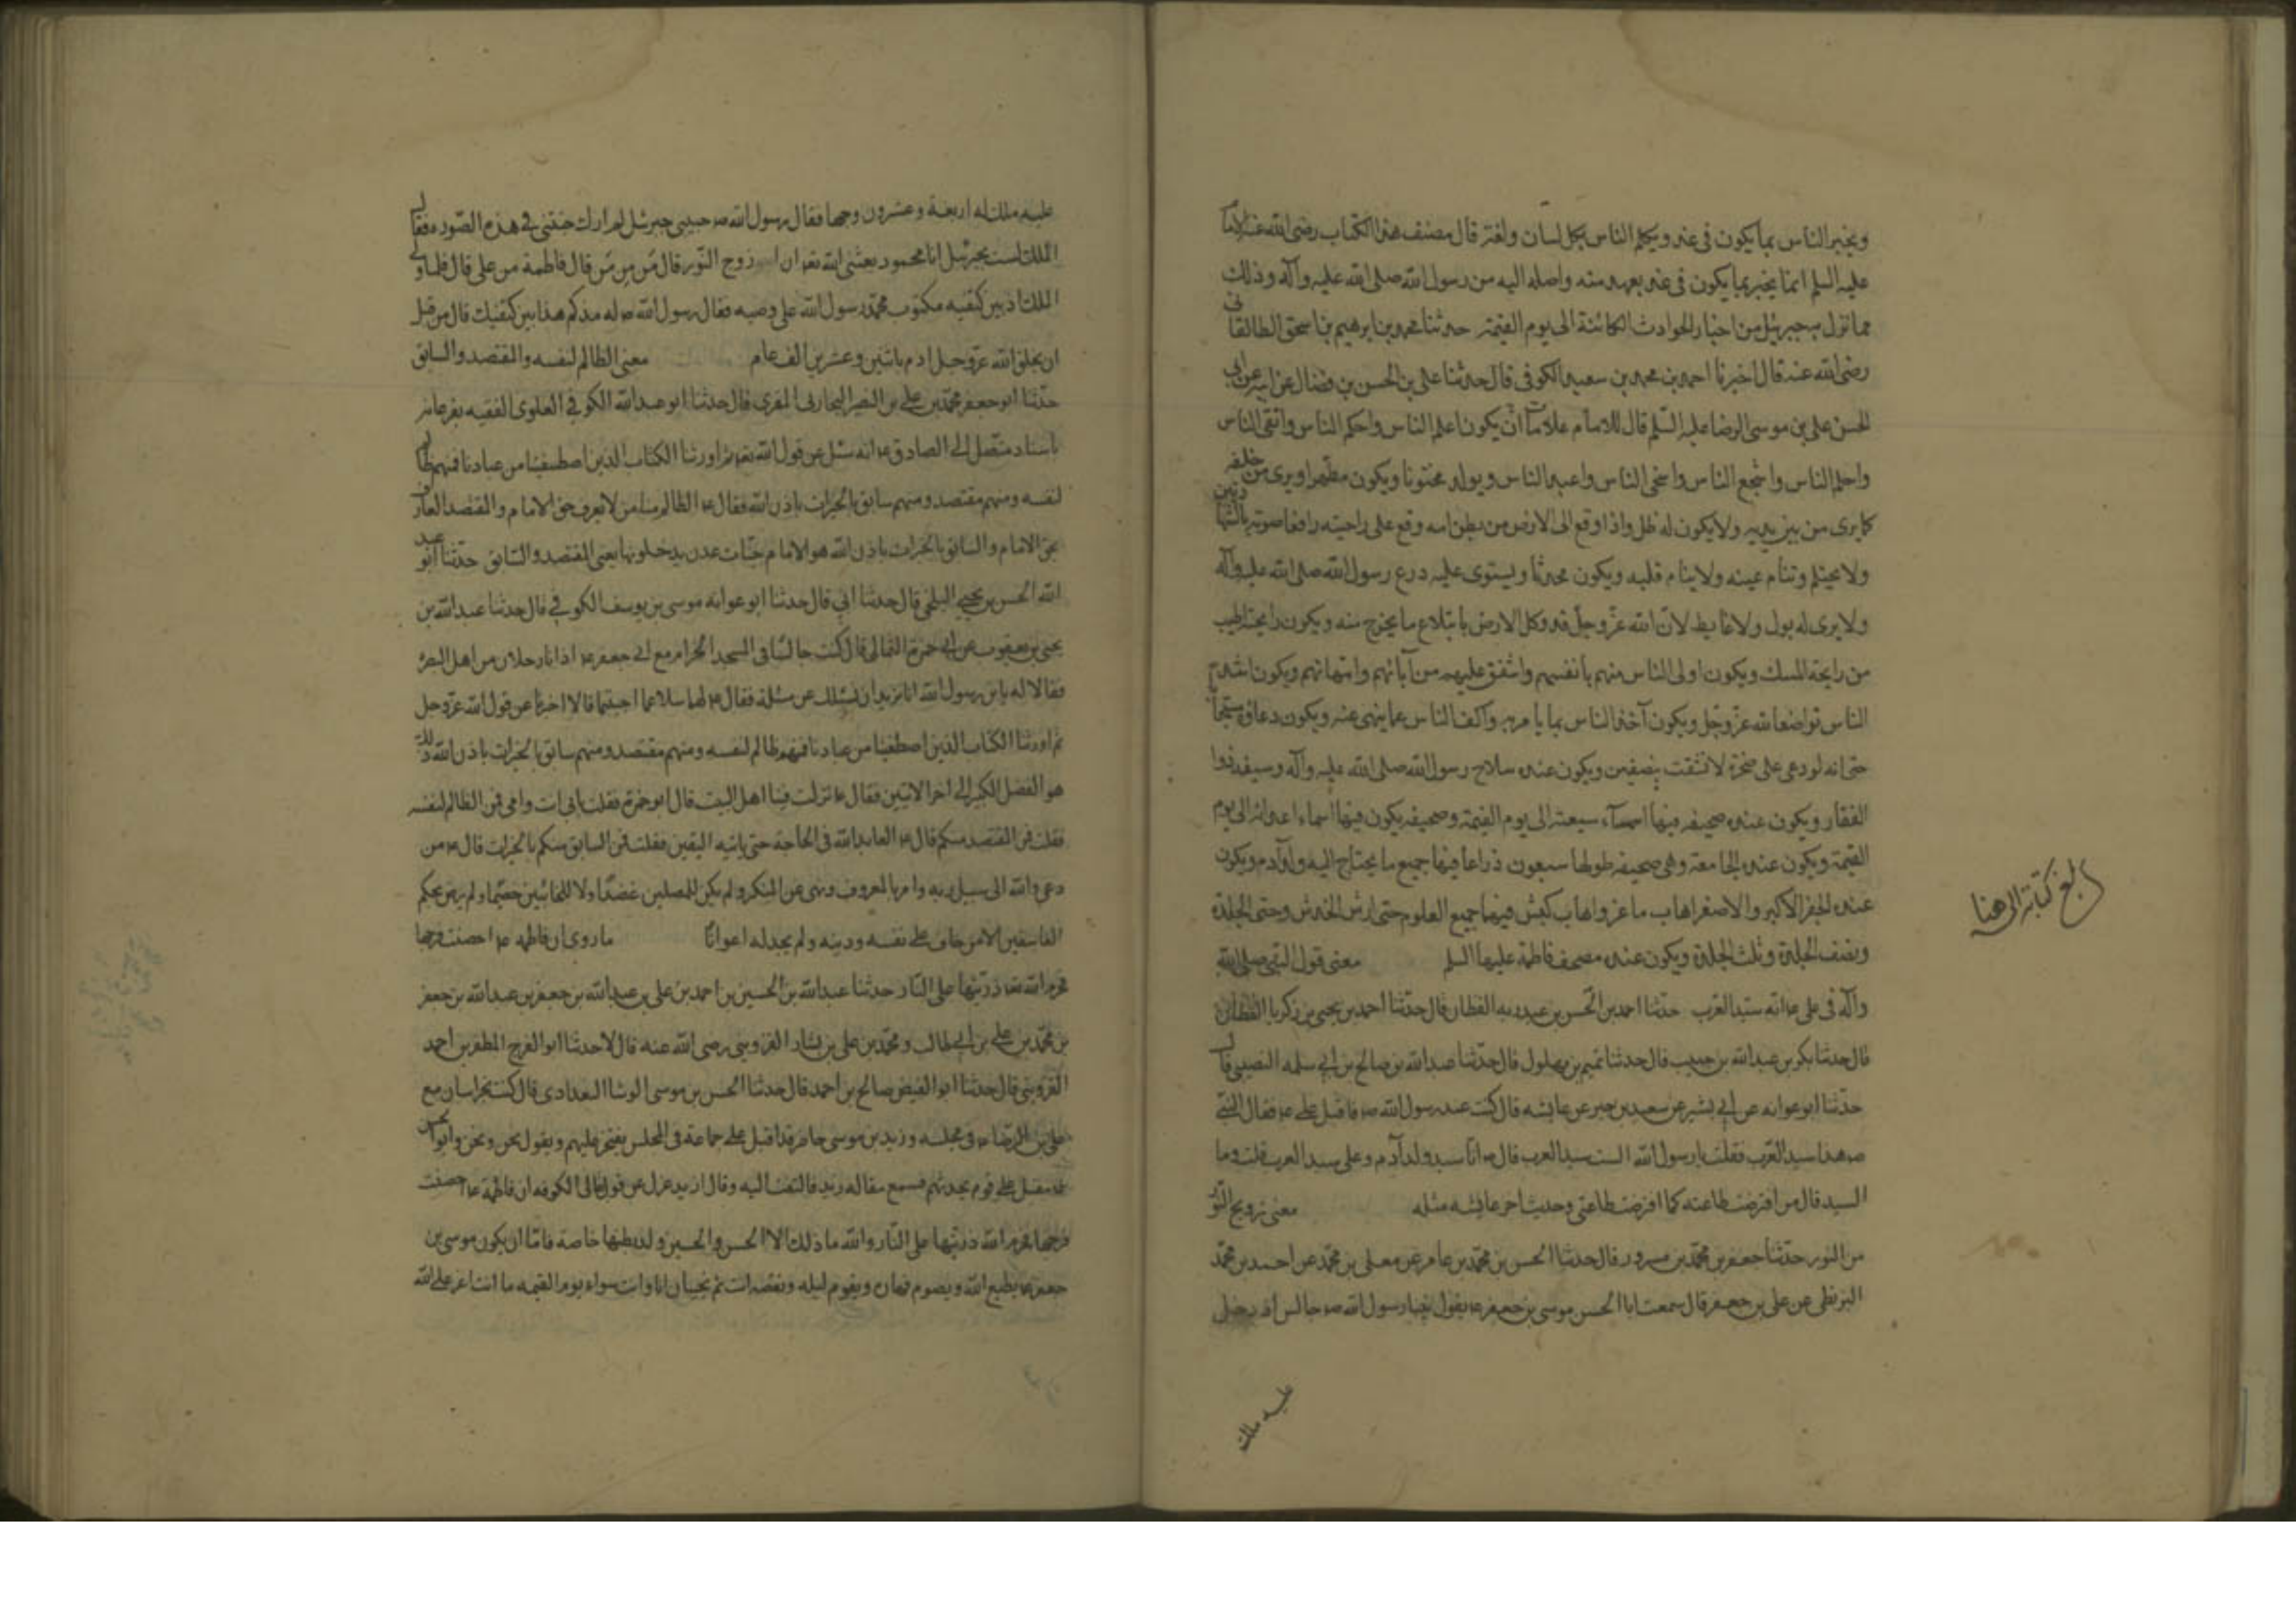 ويخبر الناس بما يكون في غد ويكلم الناس بكل لسان ولغة قال مصنف هذا الكتاب رضي الله عنه الامام
عليه السلم انما يخبر بما يكون في غد بعهد منه واصله اليه من رسول الله صلى الله عليه وآله وذلك
مما نزل به جبرئيل من اخبار الحوادث الكائنة الى يوم القيمة حدثنا محمد بن ابرهيم بن اسحق الطالقاني
رضي الله عنه قال اخبرنا احمد بن محمد بن سعيد الكوفي قال حدثنا علي بن الحسن بن فضال عن ابيه عن ابي
الحسن علي بن موسى الرضا عليه السلم قال للامام علامات ان يكون اعلم الناس واحكم الناس واتقى الناس
واحلم الناس واشجع الناس واسخى الناس واعبد الناس ويولد مختونا ويكون مطهرا ويرى من خلفه
كما يرى من بين يديه ولا يكون له ظل واذا وقع الى الارض من بطن امه وقع على راحتيه رافعا صوته بالشهادتين
ولا يحتلم وتنام عينه ولا ينام قلبه ويكون محدثا ويستوي عليه درع رسول الله صلى الله عليه وآله
ولا يرى له بول ولا غايط لان الله عز وجل قد وكل الارض بابتلاع ما يخرج منه ويكون رايحته اطيب
من رايحة المسك ويكون اولى الناس منهم بانفسهم واشفق عليهم من آبائهم وامهاتهم ويكون اشد
الناس تواضعا لله عز وجل ويكون آخذ الناس بما يامر به واكف الناس عما ينهى عنه ويكون دعاؤه مستجابا
حتى انه لو دعى على صخرة لانشقت بنصفين ويكون عنده سلاح رسول الله صلى الله عليه وآله وسيفه ذو
الفقار ويكون عنده صحيفة فيها اسماء شيعته الى يوم القيمة وصحيفة يكون فيها اسماء اعدائه الى يوم
القيمة ويكون عنده الجامعة وهي صحيفة طولها سبعون ذراعا فيها جميع ما يحتاج اليه ولد آدم ويكون
عنده الجفر الاكبر والاصغر اهاب ماعز واهاب كبش فيهما جميع العلوم حتى ارش الخدش وحتى الجلدة
ونصف الجلدة وثلث الجلدة ويكون عنده مصحف فاطمة عليها السلم معنى قول النبي صلى الله
وآله في علي انه سيد العرب حدثنا احمد بن الحسن بن عبد ربه القطان قال حدثنا احمد بن يحيى بن زكريا القطان
قال حدثنا بكر بن عبد الله بن حبيب قال حدثنا تميم بن بهلول قال حدثنا عبد الله بن صالح بن ابي سلمه النصيبي قال
حدثنا ابو عوانه عن ابي بشير عن سعيد بن جبير عن عايشه قال كنت عند رسول الله ص فاقبل علي ع فقال النبي
ص هذا سيد العرب فقلت يا رسول الله الست سيد العرب قال ص انا سيد ولد آدم وعلي سيد العرب قلت وما
السيد قال من افترضت طاعته كما افترضت طاعتي وحديث اخر عايشه مثله معنى تزويج النور
من النور حدثنا جعفر بن محمد بن مسرور قال حدثنا الحسن بن محمد بن عامر عن معلى بن محمد عن احمد بن محمد
البزنطي عن علي بن جعفر قال سمعت ابا الحسن موسى بن جعفر ع يقول بينا رسول الله ص جالس اذ دخل
عليه ملك
بلغ كتابة الى هنا
عليه ملك له اربعة وعشرون وجها فقال رسول الله ص حبيبي جبرئيل لم ارك جئتني في هذه الصورة فقال
الملك لست بجبرئيل انا محمود بعثني الله تعه ان ازوج النور قال من من من قال فاطمة من علي قال فلما ولى
الملك اذ بين كتفيه مكتوب محمد رسول الله علي وصيه فقال رسول الله ص له مذ كم هذا بين كتفيك قال من قبل
ان يخلق الله عز وجل ادم باثنين وعشرين الف عام معنى الظالم لنفسه والمقتصد والسابق
حدثنا ابو جعفر محمد بن علي بن النصر البخاري المقري قال حدثنا ابو عبد الله الكوفي العلوي الفقيه بفرغانه
باسناد متصل الى الصادق ع انه سئل عن قول الله تعه ثم اورثنا الكتاب الذين اصطفينا من عبادنا فمنهم ظالم
لنفسه ومنهم مقتصد ومنهم سابق بالخيرات باذن الله فقال ع الظالم منا من لا يعرف حق الامام والمقتصد العارف
بحق الامام والسابق بالخيرات باذن الله هو الامام جنات عدن يدخلونها يعني المقتصد والسابق حدثنا ابو عبد
الله الحسن بن يحيى البلخي قال حدثنا ابي قال حدثنا ابو عوانه موسى بن يوسف الكوفي قال حدثنا عبد الله بن
يحيى بن يعقوب عن ابي حمزة الثمالي قال كنت جالسا في المسجد الحرام مع ابي جعفر ع اذ اتاه رجلان من اهل البصرة
فقالا له يا بن رسول الله انا نريد ان نسئلك عن مسئلة فقال ع لهما سلا عما احببتما قالا اخبرنا عن قول الله عز وجل
ثم اورثنا الكتاب الذين اصطفينا من عبادنا فمنهم ظالم لنفسه ومنهم مقتصد ومنهم سابق بالخيرات باذن الله ذلك
هو الفضل الكبير الى اخر الايتين فقال ع نزلت فينا اهل البيت قال ابو حمزة فقلت بابي انت وامي فمن الظالم لنفسه
فقلت فمن المقتصد منكم قال ع العابد لله في الحاجة حتى ياتيه اليقين فقلت فمن السابق منكم بالخيرات قال ع من
دعى والله الى سبيل ربه وامر بالمعروف ونهى عن المنكر ولم يكن للمصلين عضدا ولا للخائنين خصيما ولم يرض بحكم
الفاسقين الا من خاف على نفسه ودينه ولم يجد له اعوانا ما روي ان فاطمه ع احصنت فرجها
فحرم الله تعه ذريتها على النار حدثنا عبد الله بن الحسين بن احمد بن علي بن عبد الله بن جعفر بن عبد الله بن جعفر
بن محمد بن علي بن ابي طالب ومحمد بن علي بن بشار القزويني رضي الله عنه قالا حدثنا ابو الفرج المظفر بن احمد
القزويني قال حدثنا ابو الفيض صالح بن احمد قال حدثنا الحسن بن موسى الوشا البغدادي قال كنت بخراسان مع
علي بن الرضا ع في مجلسه وزيد بن موسى حاضر قد اقبل على جماعة في المجلس يفتخر عليهم ويقول نحن ونحن وابو الحسن
ع مقبل على قوم يحدثهم فسمع مقاله زيد فالتفت اليه وقال ازيد غرك عن قول بقالي الكوفه ان فاطمة ع احصنت
فرجها فحرم الله ذريتها على النار والله ما ذلك الا الحسن والحسين ولد بطنها خاصة فاما ان يكون موسى بن
جعفر ع يطيع الله ويصوم نهاره ويقوم ليله وتعصه انت ثم تجيان انا وانت سواء يوم القيمه ما انت اعز على الله